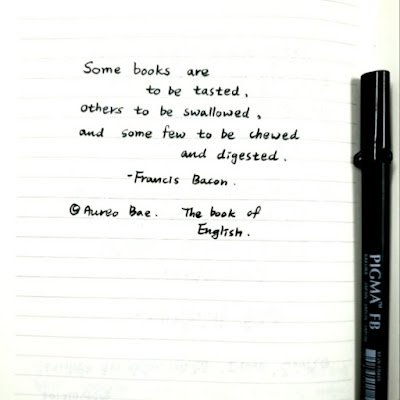 Some books are
to be tasted,
others to be swallowed,
and some few to be chewed
and digested.
-Francis Bacon.
© Aureo Bae. The book of
English.
PIGMA™ FB